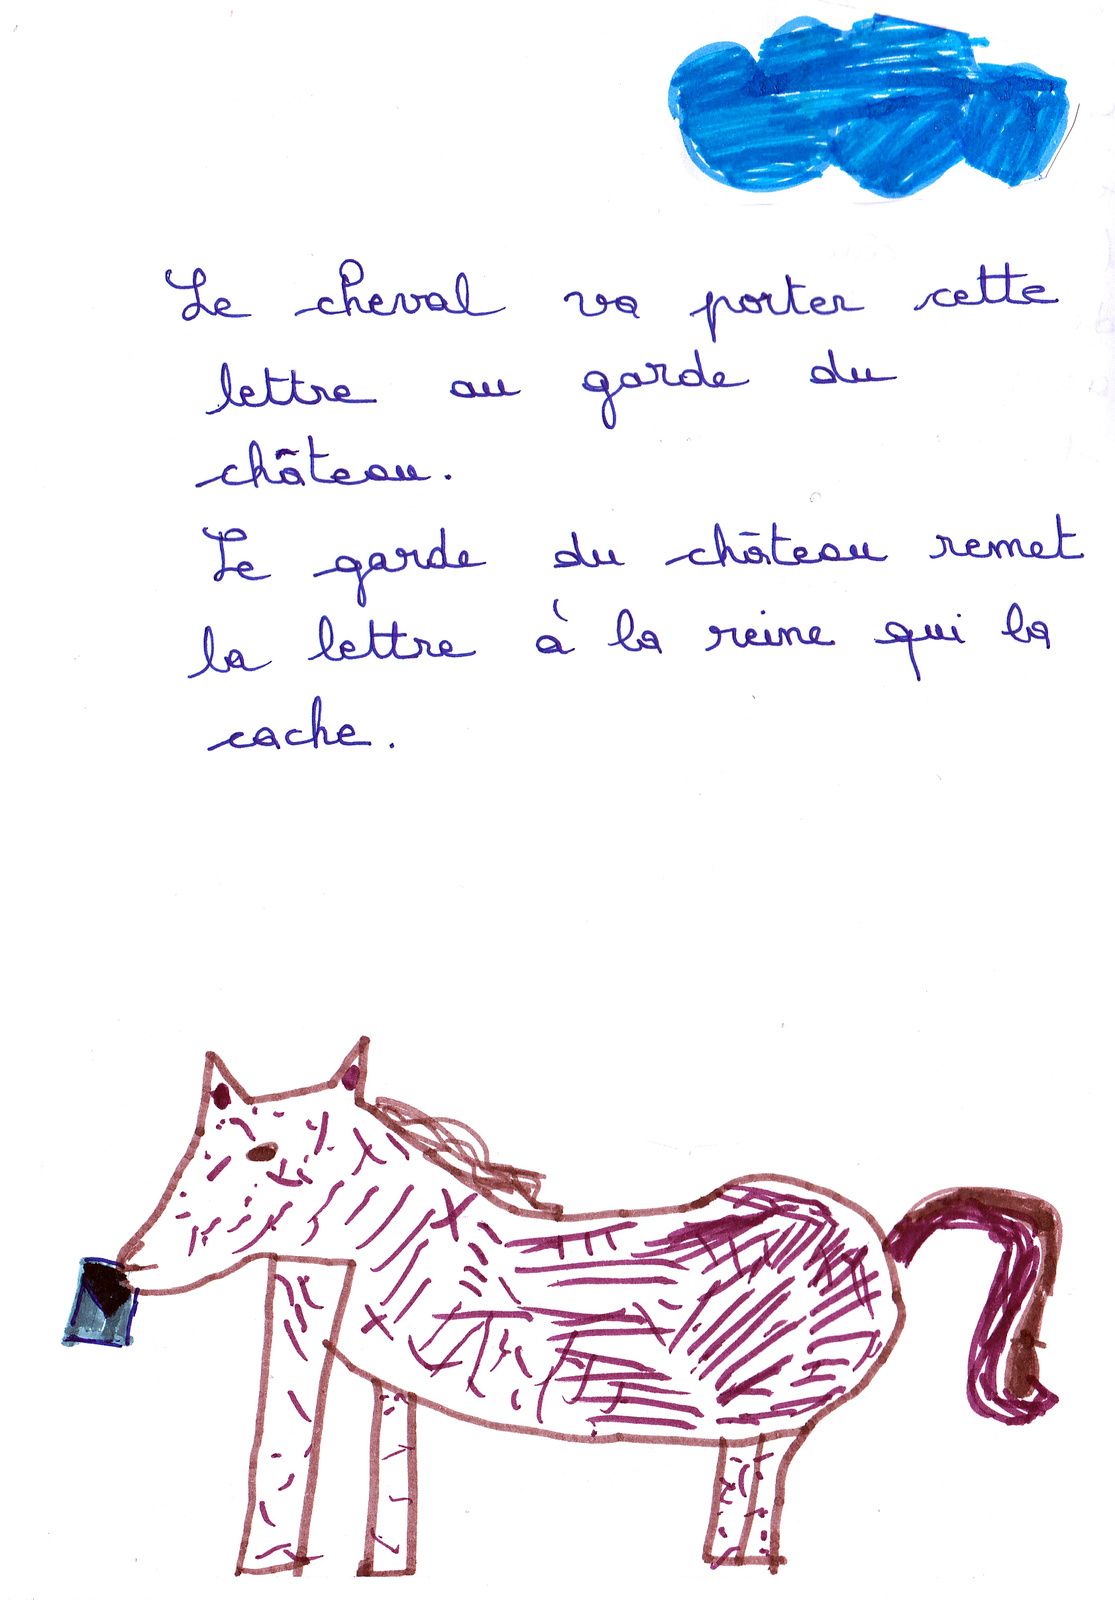 Le cheval va porter cette
lettre au garde du
château.
Le garde du château remet
la lettre à la reine qui la
cache.